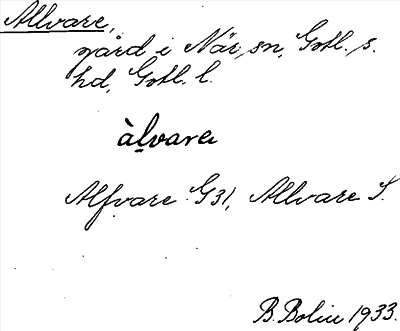 Allvare,
gård i När sn, Gotl. s.
hd, Gotl. l.
àlvara
Alfvare G31, Allvare S.
B. Bolin 1933.